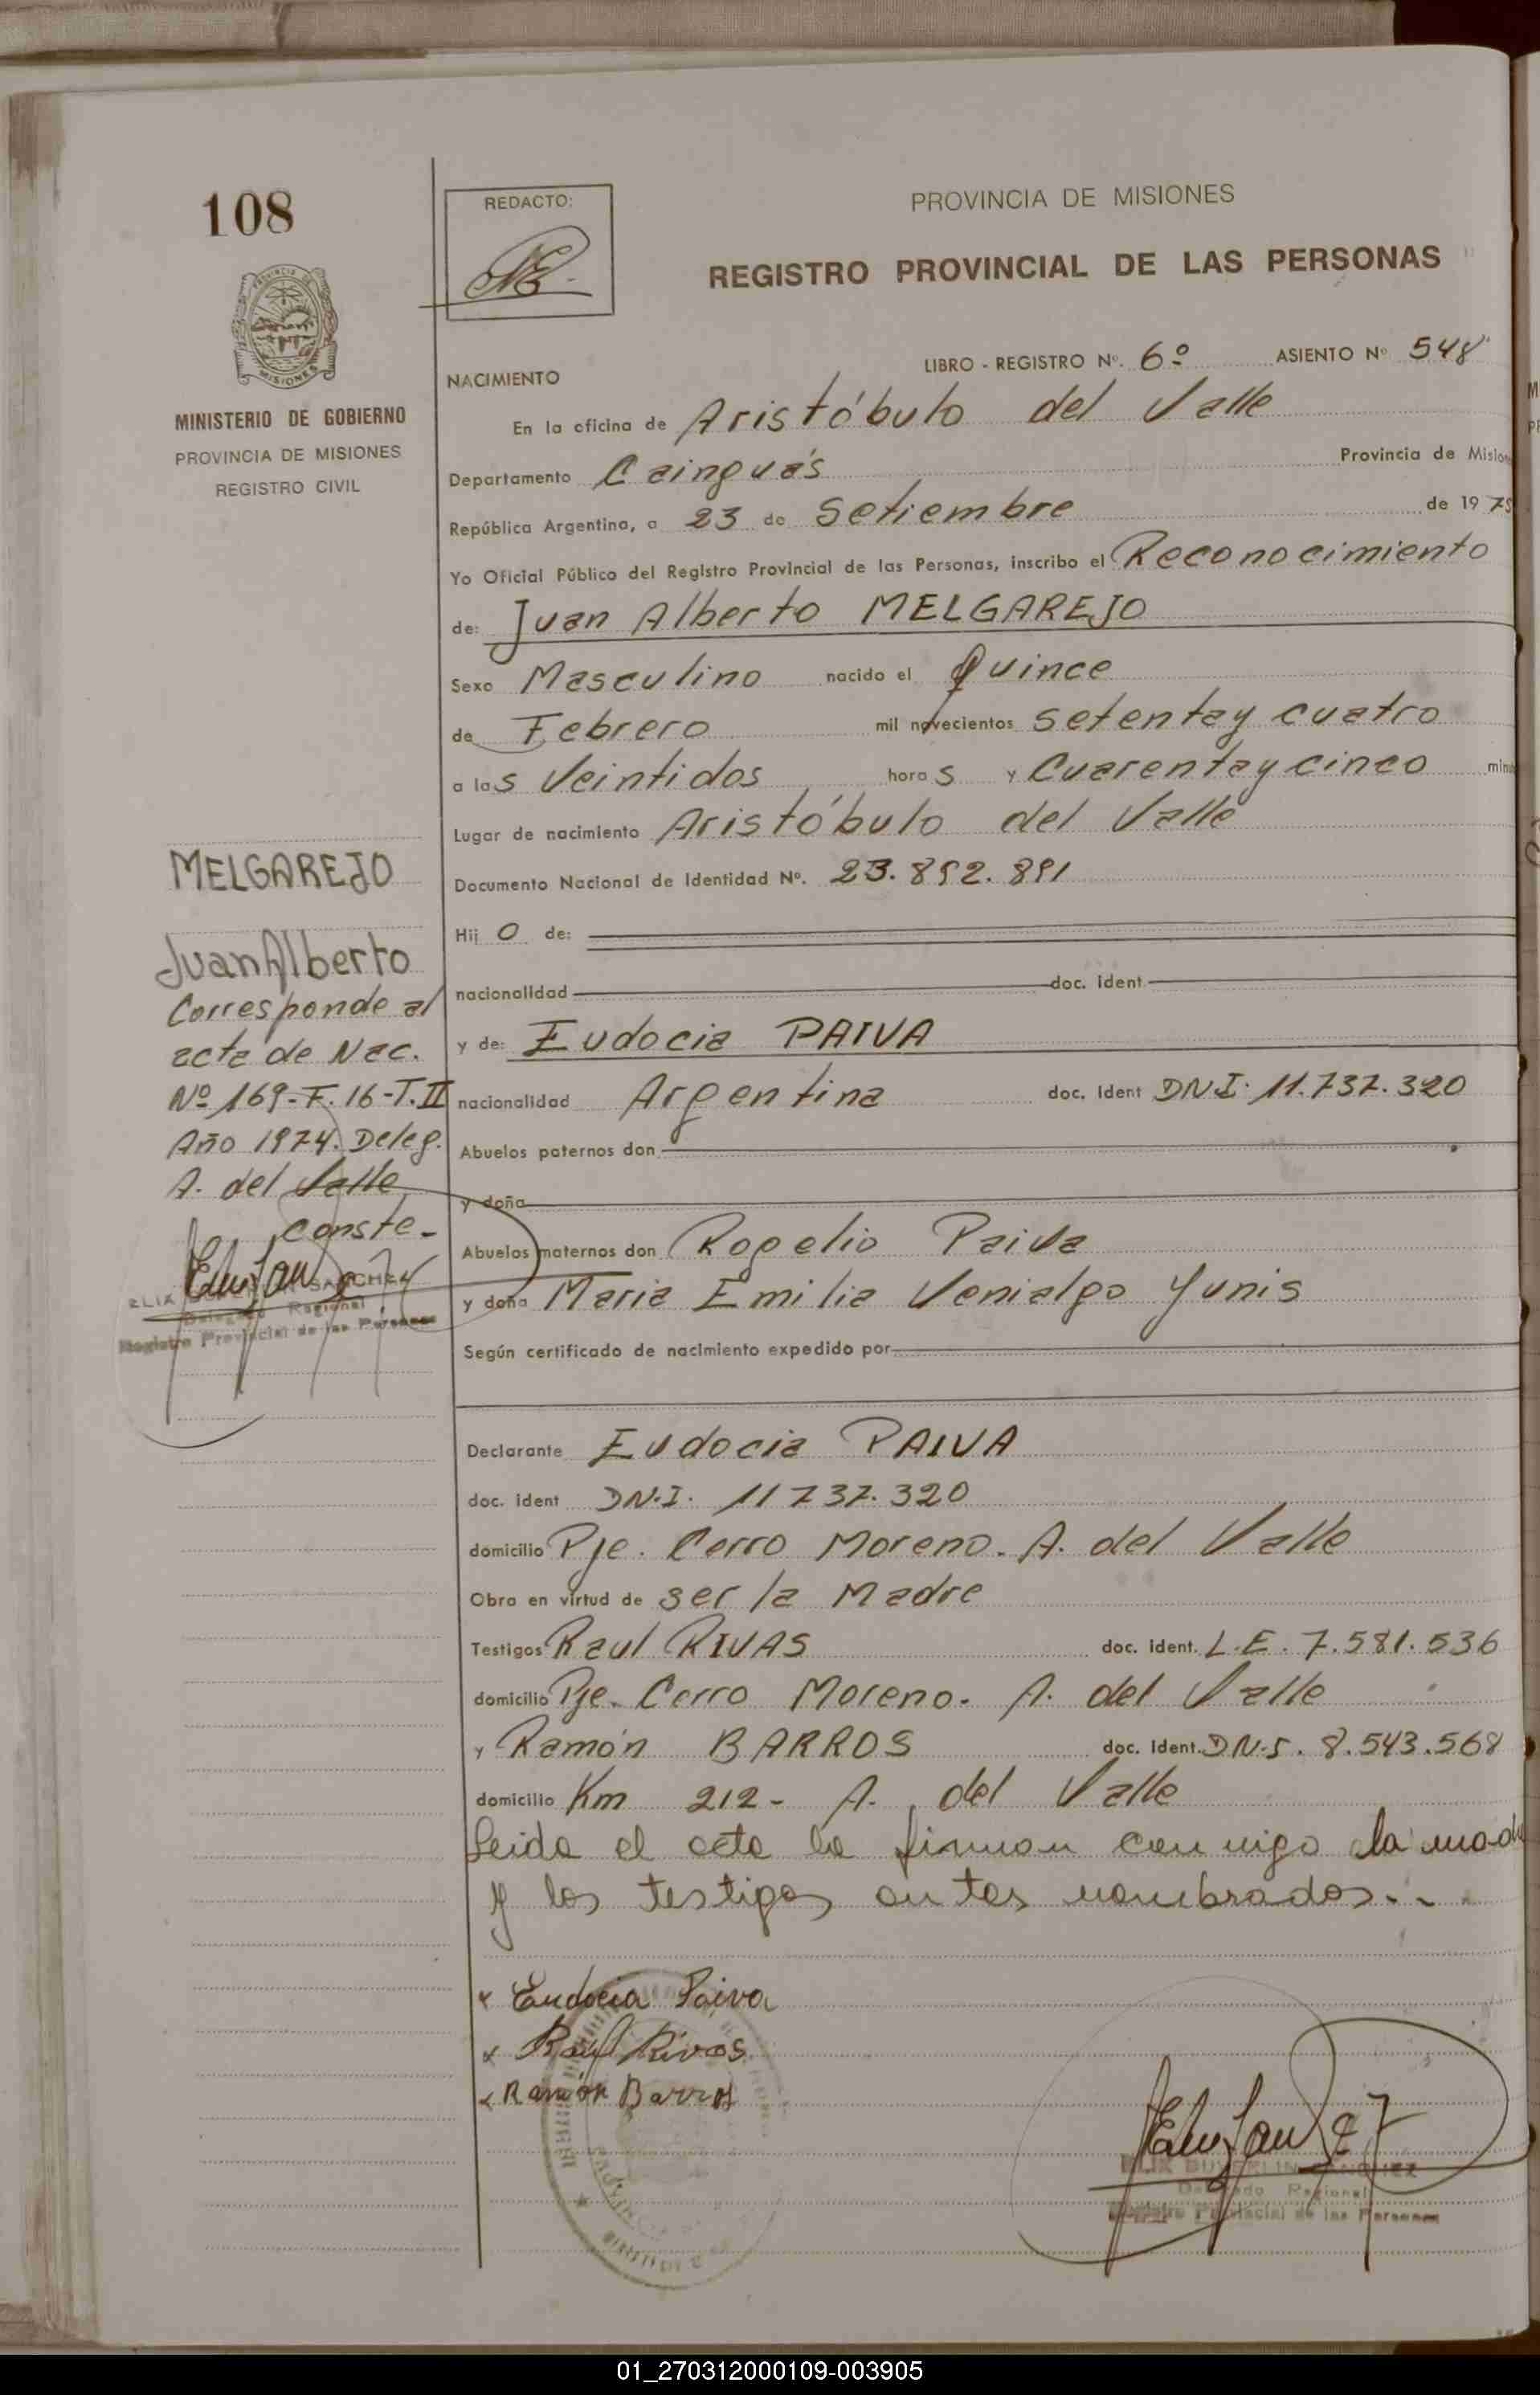 108
REDACTO:
PROVINCIA DE MISIONES
REGISTRO PROVINCIAL DE LAS PERSONAS
PROVINCIA DE
MISIONES
MINISTERIO DE GOBIERNO
PROVINCIA DE MISIONES
REGISTRO CIVIL
LIBRO - REGISTRO Nº. 6º ASIENTO Nº 548
NACIMIENTO
En la oficina de Aristóbulo del Valle
Departamento Cainguás Provincia de Mision
República Argentina, a 23 de Setiembre de 1975
Yo Oficial Público del Registro Provincial de las Personas, inscribo el Reconocimiento
de: Juan Alberto MELGAREJO
Sexo Masculino nacido el Quince
de Febrero mil novecientos setentay cuatro
a las Veintidos horas y Cuarentay cinco min
Lugar de nacimiento Aristóbulo del Valle
Documento Nacional de Identidad Nº. 23.852.891
Hij o de:
nacionalidad doc. ident
y de: Eudocia PAIVA
nacionalidad Argentina doc. ident DN.I. 11.737.320
Abuelos paternos don
y doña
Abuelos maternos don Rogelio Paiva
y doña Maria Emilia Venialgo Yunis
Según certificado de nacimiento expedido por
MELGAREJO
Juan Alberto
Corresponde al
acta de Nac.
Nº 169-F. 16-T.II
Año 1974. Deleg.
A. del Valle
conste-
ELIX SANCHEZ
Delegado Regional
Registro Provincial de las Personas
Declarante Eudocia PAIVA
doc. ident DN.I. 11737.320
domicilio Pje. Cerro Moreno. A. del Valle
Obra en virtud de ser la Madre
Testigos Raul RIVAS doc. ident. L.E. 7.581.536
domicilio Pje. Cerro Moreno. A. del Valle
y Ramón BARROS doc. ident. DN.I. 8.543.568
domicilio Km 212- A. del Valle
Leida el acta la firman conmigo la mad
y los testigos antes nombrados..
x Eudocia Paiva
x Raul Rivas
x Ramón Barros
ELIX SANCHEZ
Delegado Regional
Registro Provincial de las Personas
01_270312000109-003905